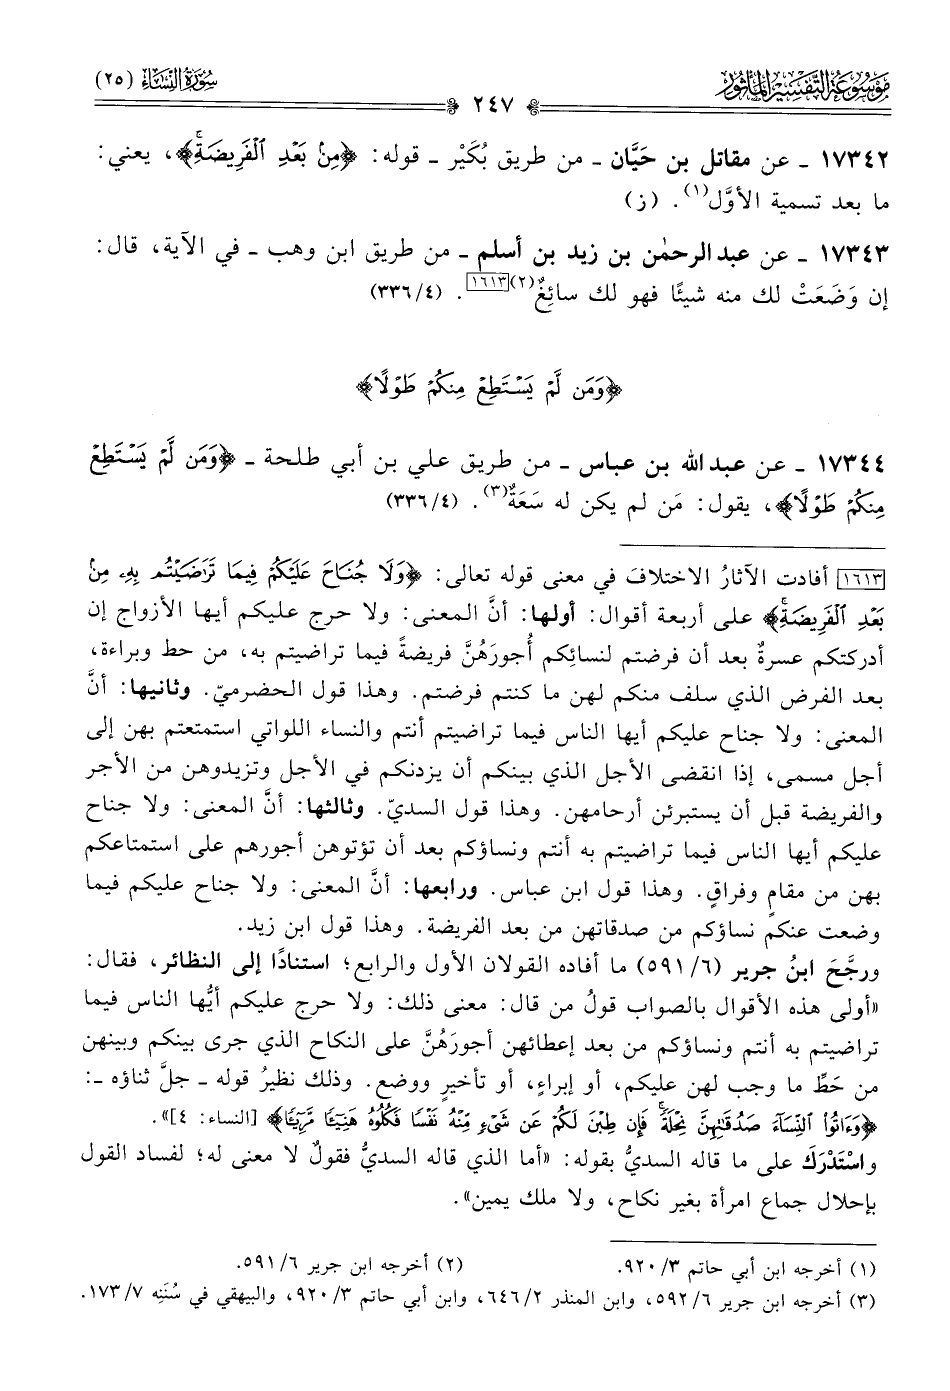 موسوعة التفسير المأثور
سورة النساء (٢٥)
٢٤٧
١٧٣٤٢ ـ عن مقاتل بن حَيَّان ـ من طريق بُكَيْر ـ قوله: ﴿مِنۢ بَعْدِ ٱلْفَرِيضَةِۚ﴾، يعني:
ما بعد تسمية الأوَّل(١). (ز)
١٧٣٤٣ ـ عن عبدالرحمٰن بن زيد بن أسلم ـ من طريق ابن وهب ـ في الآية، قال:
إن وَضَعَتْ لك منه شيئًا فهو لك سائِغٌ(٢)[١٦١٣]. (٣٣٦/٤)
﴿وَمَن لَّمْ يَسْتَطِعْ مِنكُمْ طَوْلًا﴾
١٧٣٤٤ ـ عن عبدالله بن عباس ـ من طريق علي بن أبي طلحة ـ ﴿وَمَن لَّمْ يَسْتَطِعْ
مِنكُمْ طَوْلًا﴾، يقول: مَن لم يكن له سَعَةٌ(٣). (٣٣٦/٤)
[١٦١٣] أفادت الآثارُ الاختلافَ في معنى قوله تعالى: ﴿وَلَا جُنَاحَ عَلَيْكُمْ فِيمَا تَرَٰضَيْتُم بِهِۦ مِنۢ
بَعْدِ ٱلْفَرِيضَةِۚ﴾ على أربعة أقوال: أولها: أنَّ المعنى: ولا حرج عليكم أيها الأزواج إن
أدركتكم عسرةٌ بعد أن فرضتم لنسائِكم أُجورَهُنَّ فريضةً فيما تراضيتم به، من حط وبراءة،
بعد الفرض الذي سلف منكم لهن ما كنتم فرضتم. وهذا قول الحضرميّ. وثانيها: أنَّ
المعنى: ولا جناح عليكم أيها الناس فيما تراضيتم أنتم والنساء اللواتي استمتعتم بهن إلى
أجل مسمى، إذا انقضى الأجل الذي بينكم أن يزدنكم في الأجل وتزيدوهن من الأجر
والفريضة قبل أن يستبرئن أرحامهن. وهذا قول السديّ. وثالثها: أنَّ المعنى: ولا جناح
عليكم أيها الناس فيما تراضيتم به أنتم ونساؤكم بعد أن تؤتوهن أجورهم على استمتاعكم
بهن من مقامٍ وفراقٍ. وهذا قول ابن عباس. ورابعها: أنَّ المعنى: ولا جناح عليكم فيما
وضعت عنكم نساؤكم من صدقاتهن من بعد الفريضة. وهذا قول ابن زيد.
ورجَّحَ ابنُ جرير (٥٩١/٦) ما أفاده القولان الأول والرابع؛ استنادًا إلى النظائر، فقال:
«أولى هذه الأقوال بالصواب قولُ من قال: معنى ذلك: ولا حرج عليكم أيُّها الناس فيما
تراضيتم به أنتم ونساؤكم من بعد إعطائهن أجورَهُنَّ على النكاح الذي جرى بينكم وبينهن
من حَطِّ ما وجب لهن عليكم، أو إبراءٍ، أو تأخيرٍ ووضع. وذلك نظيرُ قوله ـ جلَّ ثناؤه ـ:
﴿وَءَاتُوا۟ ٱلنِّسَآءَ صَدُقَٰتِهِنَّ نِحْلَةًۚ فَإِن طِبْنَ لَكُمْ عَن شَىْءٍ مِّنْهُ نَفْسًا فَكُلُوهُ هَنِيٓـًٔا مَّرِيٓـًٔا﴾ [النساء: ٤]».
واسْتَدْرَكَ على ما قاله السديُّ بقوله: «أما الذي قاله السديُّ فقولٌ لا معنى له؛ لفساد القول
بإحلال جماع امرأة بغير نكاح، ولا ملك يمين».
(١) أخرجه ابن أبي حاتم ٩٢٠/٣. (٢) أخرجه ابن جرير ٥٩١/٦.
(٣) أخرجه ابن جرير ٥٩٢/٦، وابن المنذر ٦٤٦/٢، وابن أبي حاتم ٩٢٠/٣، والبيهقي في سُنَنِه ١٧٣/٧.